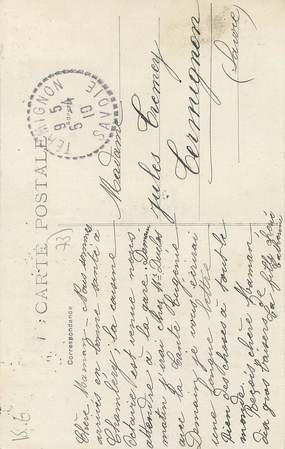 CARTE POSTALE
Correspondance
Chère Maman. Nous sommes
arrivés en bonne santé à
Chambéry, la cousine
Octavie est venue nous
attendre à la gare. Demain
matin j'irai chez Mr
avec la Tante Eugénie
Demain je vous écrirai
une longue lettre
Bien des choses à tout le
monde.
Reçois chère Maman
dix gros baisers de ta fille
Madame
Jules Tremey
Termignon
(Savoie)
TERMIGNON
SAVOIE
9 5
5
10
73